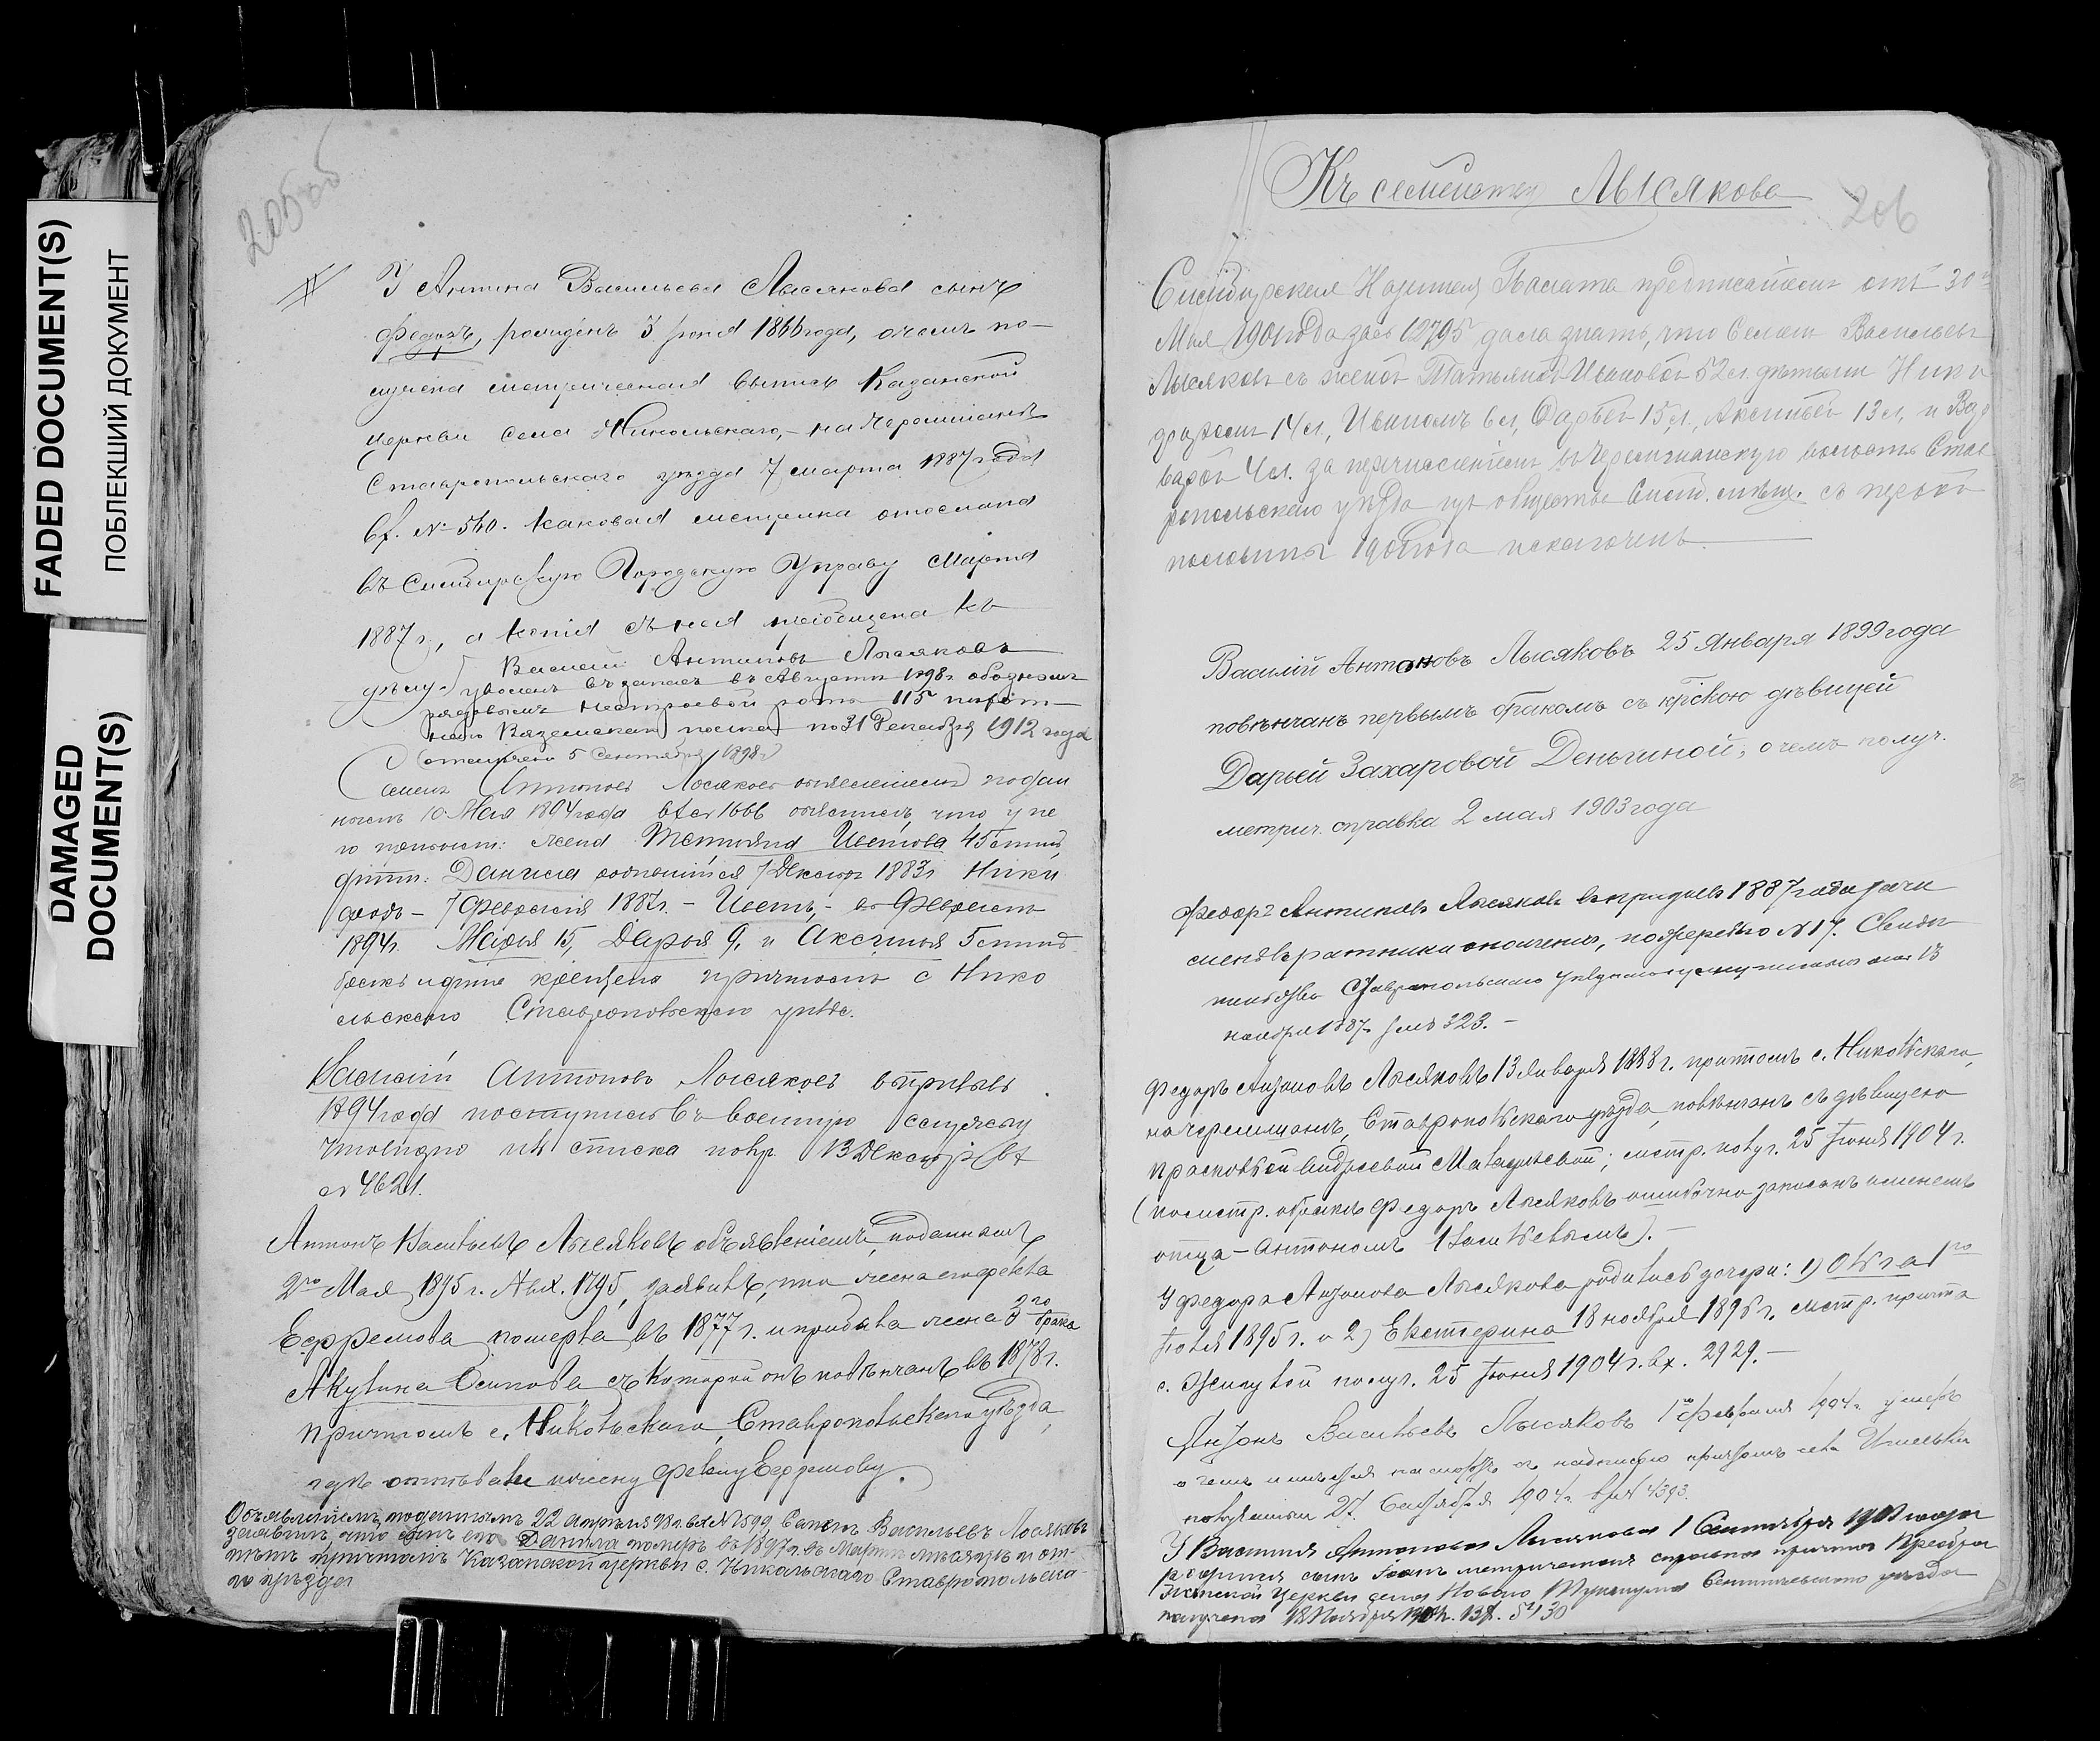 FADED DOCUMENT(S)
ПОБЛЕКШИЙ ДОКУМЕНТ
DAMAGED
DOCUMENT(S)
205об
У Антона Васильева Лысякова сынъ
Федоръ, рожденъ 3 Іюня 1866 года, о чемъ по-
лучена метрическая выпись Казанской
церкви села Никольскаго,- на Черемшанѣ
Ставропольскаго уѣзда 7 марта 1887 года
вх. № 560. Каковая метрика отослана
въ Симбирскую Городскую Управу Марта
1887 г., а копія съ нея пріобщена къ
дѣлу.
Василій Антоновъ Лысяковъ
уволенъ въ запасъ въ Августѣ 1898 г. обознымъ
рядовымъ нестроевой роты 115 пѣхот-
наго Вяземскаго полка по 31 Декабря 1912 года
(отмѣчено 5 Сентября 1898 г.)
Семенъ Лысяковъ объявленіемъ подан
нымъ 10 Мая 1894 года вх № 1666 объяснилъ, что у не
го прописать: жена Татьяна Иванова 45 лѣтъ,
дѣти: Данила родившійся 17 Декабря 1883 г. Ники
форъ - 7 Февраля 1887 г. - Иванъ, - въ Февралѣ
1894 г. Марья 15, Дарья 9, и Аксинья 5 лѣтъ
бракъ и дѣти крещены причтомъ с. Нико
льскаго Ставропольскаго уѣзда.
Василій Антоновъ Лысяковъ въ призывъ
1894 года поступилъ въ военную службу
что видно изъ списка 13 Декабря вх
№ 4621.
Антонъ Васильевъ Лысяковъ объявленіемъ, поданнымъ
2го Мая 1895 г. № вх. 1795, заявилъ, что жена его Фекла
Ефремова померла въ 1877 г. и прибыла жена 3го брака
Акулина Осипова съ которой онъ повѣнчанъ въ 1878 г.
причтомъ с. Никольскаго, Ставропольскаго уѣзда,
гдѣ отпѣвали и жену Феклу Ефремову.
Объявленіемъ, поданнымъ 22 апрѣля 98 г. вх № 1599 Семенъ Васильевъ Лысяковъ
заявилъ, что сынъ его Данила померъ въ 1897 г. въ Мартѣ мѣсяцѣ и от-
пѣтъ причтомъ Казанской церкви с. Никольскаго Ставропольска-
го уѣзда
Къ семейству Лысякова
206
Симбирская Казенная Палата предписаніемъ отъ 30
Мая 1901 года за № 12795 дала знать, что Семенъ Васильевъ
Лысяковъ съ женой Татьяной Ивановой 52 л. дѣтьми Ники
форомъ 14 л., Иваномъ 6 л., Дарьей 15 л., Аксиньей 13 л. и Вар
варой 4 л. за перечисленіемъ въ Черемшанскую волость Став
ропольскаго уѣзда изъ общества Симб. мѣщ. съ первой
половины 1901 года исключенъ.
Василій Антоновъ Лысяковъ 25 Января 1899 года
повѣнчанъ первымъ бракомъ съ крⷭ҇кою дѣвицей
Дарьей Захаровой Деньгиной; о чемъ получ.
метрич. справка 2 мая 1903 года
Федоръ Антоновъ Лысяковъ въ призывъ 1887 года зачи
сленъ въ ратники ополченія, по жеребью № 17. Свидѣ
тельство Ставропольскаго уѣзднаго присутствія отъ 13
ноября 1887 г. за № 323. -
Федоръ Антоновъ Лысяковъ 13 Января 1888 г. причтомъ с. Никольскаго,
на Черемшанѣ, Ставропольскаго уѣзда, повѣнчанъ съ дѣвицею
Прасковьей Андреевой; метр. получ. 25 Іюня 1904 г.
(по метр. о бракѣ Федоръ Лысяковъ ошибочно записанъ именемъ
отца - Антономъ Васильевымъ). -
У Федора Антонова Лысякова родились дочери: 1) Ольга 1го
Іюля 1895 г. и 2) Екатерина 18 ноября 1896 г. метр. причта
с. получ. 25 Іюня 1904 г. вх. 2929. -
Антонъ Васильевъ Лысяковъ 1го февраля 1904 г. умеръ
о чемъ имѣется паспортъ съ надписью причтомъ села
полученъ 27 Сентября 1904 г. вх № 4393.
У Василія Антонова Лысякова 1 Сентября 1901 года
родился сынъ метрическая справка причта Преобра
женской церкви села Новаго уѣзда
получена 18 Ноября 1904 г. вх. 5130